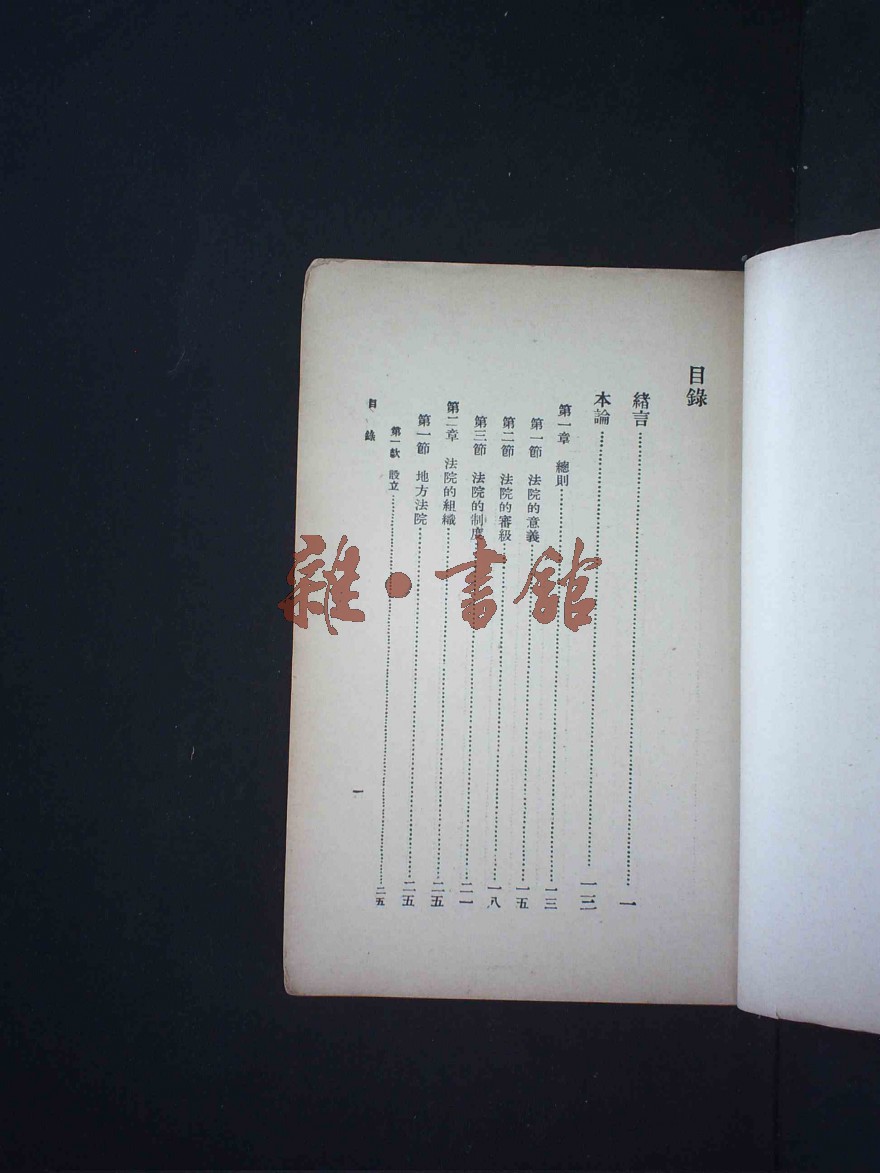 目錄
緒言……一
本論……一三
第一章 總則……一三
第一節 法院的意義……一五
第二節 法院的審級……一八
第三節 法院的制度……二一
第二章 法院的組織……二五
第一節 地方法院……二五
第一款 設立……二五
目錄
一
雜·書館